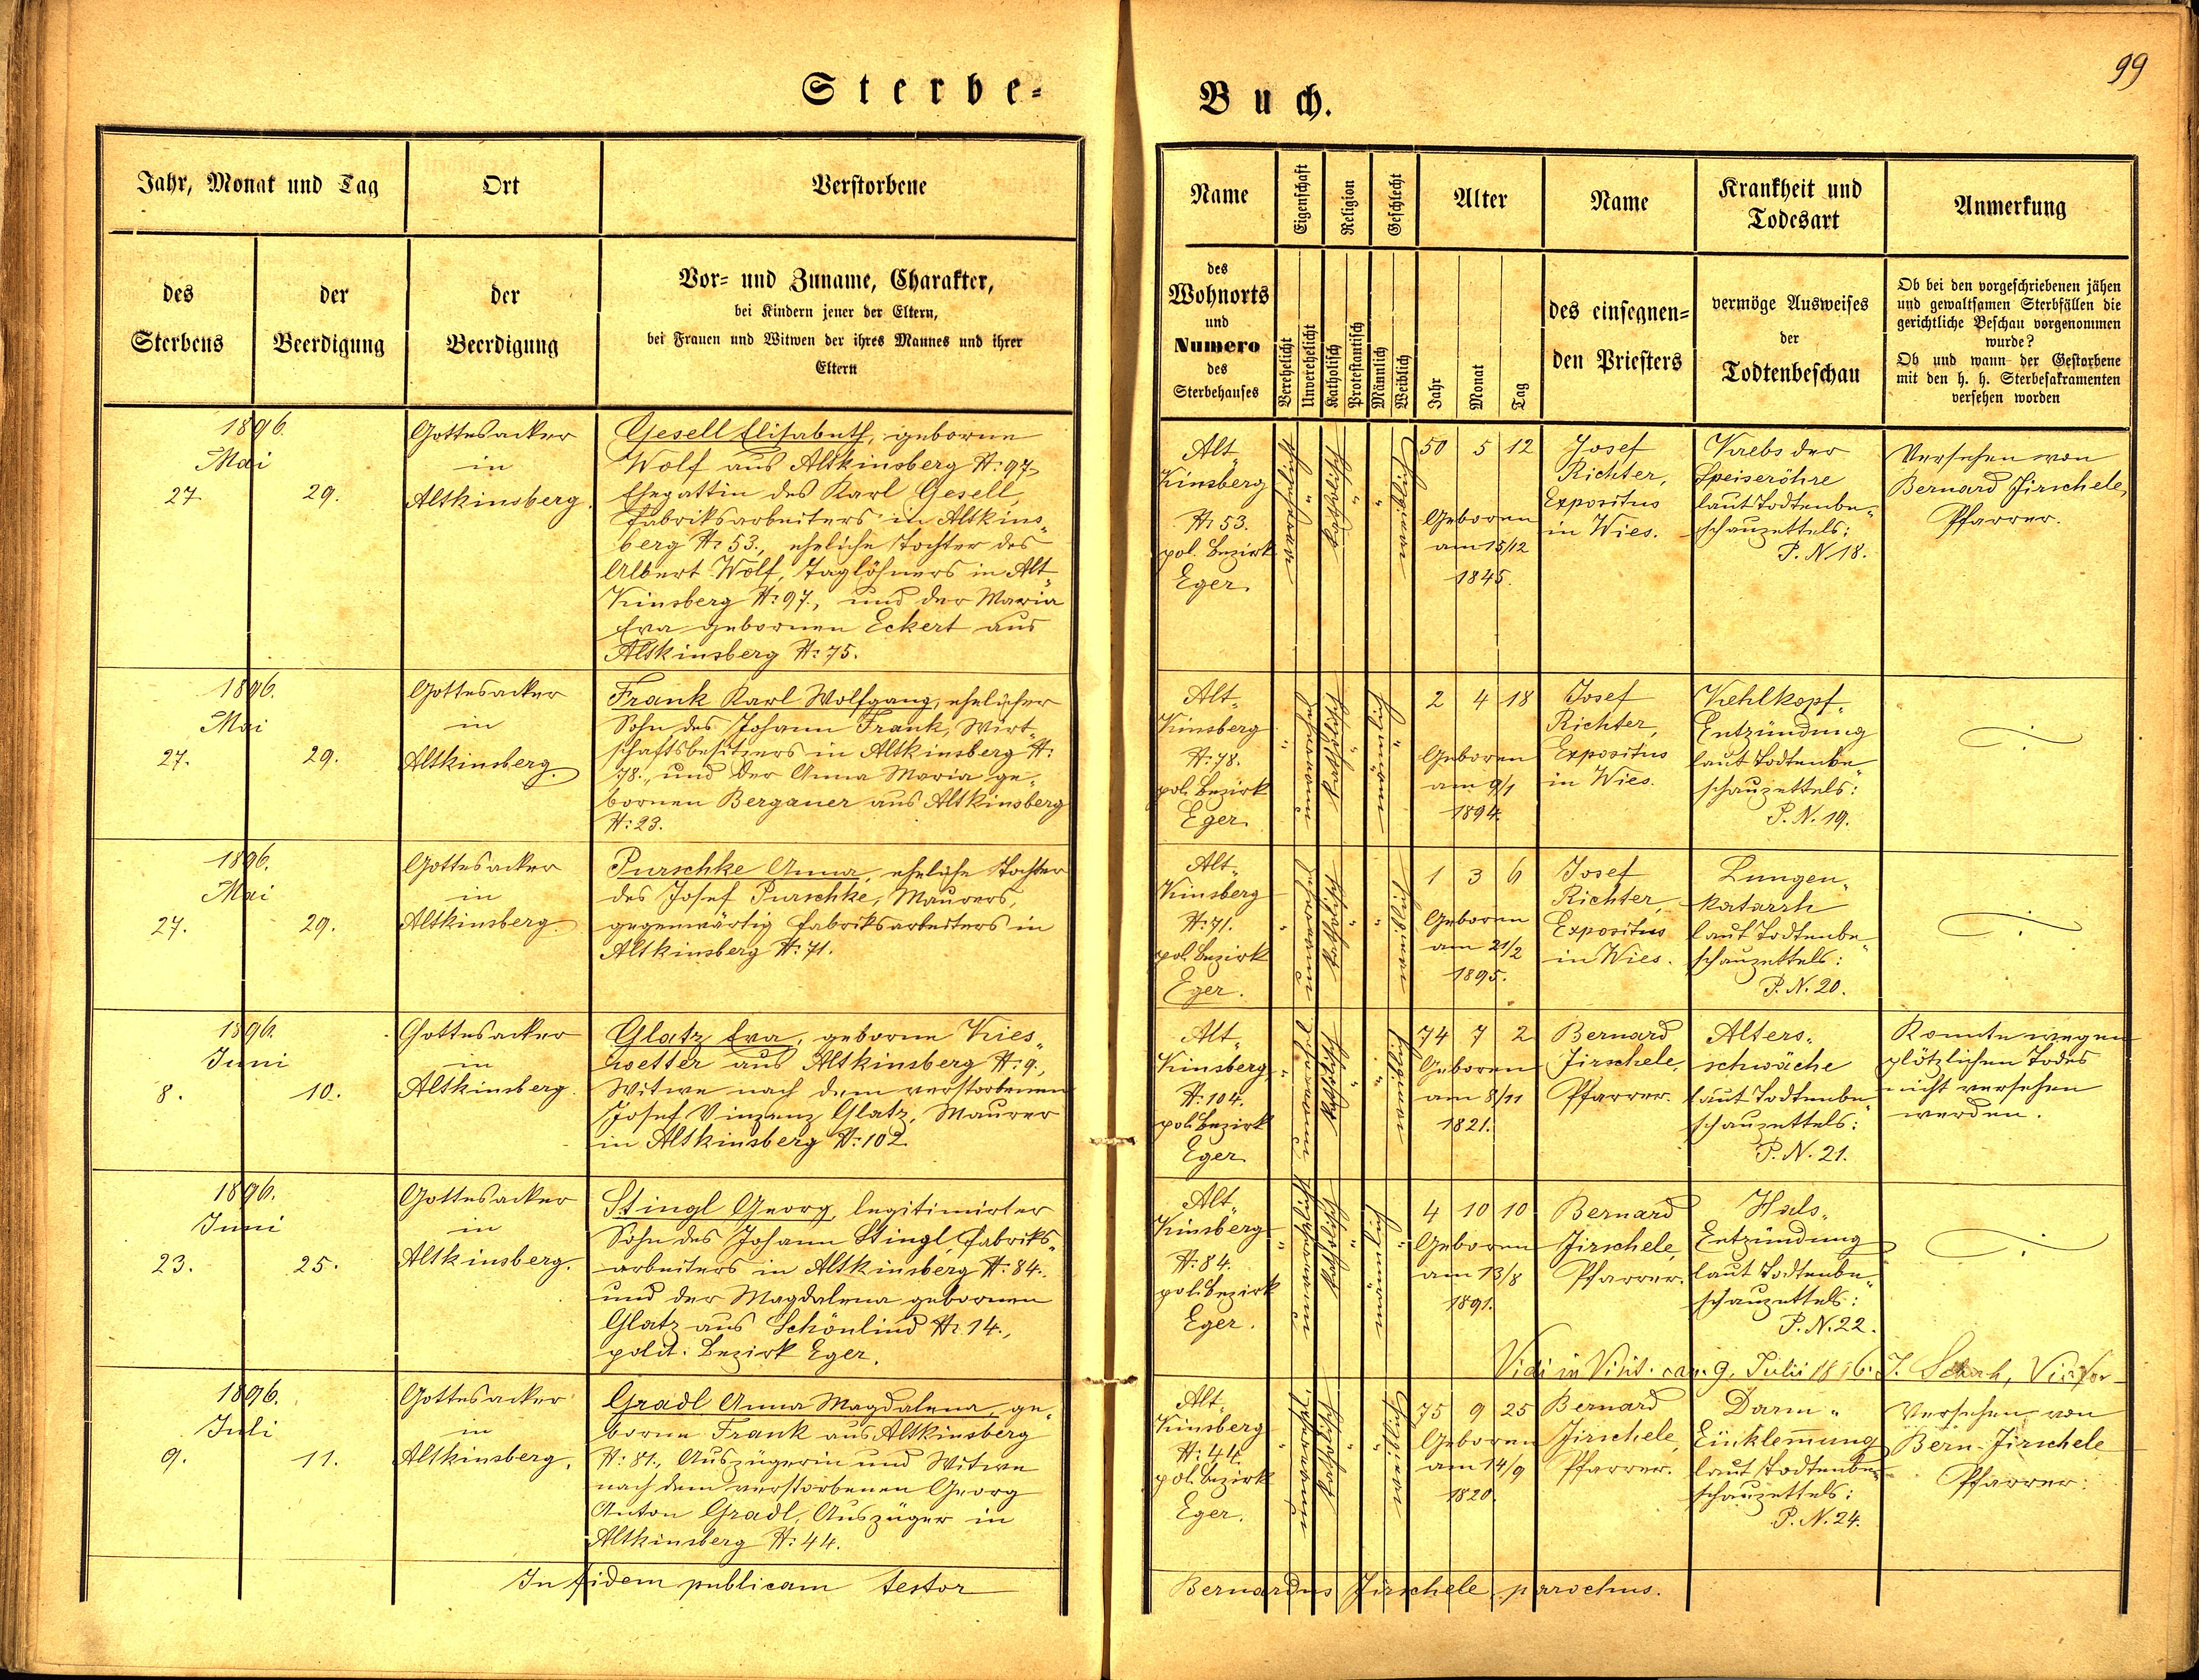 99
Sterbe-
Buch.
Jahr, Monat und Tag
Ort
Verstorbene
des
Sterbens
der
Beerdigung
der
Beerdigung
Vor- und Zuname, Charakter,
bei Kindern jener der Eltern,
bei Frauen und Witwen der ihres Mannes und ihrer
Eltern
Name
Eigenschaft
Religion
Geschlecht
Alter
Name
Krankheit und
Todesart
Anmerkung
des
Wohnorts
und
Numero
des
Sterbehauses
Verehelicht
Unverehelicht
Katholisch
Protestantisch
Männlich
Weiblich
Jahr
Monat
Tag
des einsegnen-
den Priesters
vermöge Ausweises
der
Todtenbeschau
Ob bei den vorgeschriebenen jähen
und gewaltsamen Sterbfällen die
gerichtliche Beschau vorgenommen
wurde?
Ob und wann der Gestorbene
mit den h. h. Sterbesakramenten
versehen worden
1896.
Mai
27. 29.
Gottesacker
in
Altkinsberg.
Gesell Elisabeth, geborne
Wolf aus Altkinsberg N: 97,
Ehegattin des Karl Gesell,
Fabriksarbeiters in Altkins„
berg N: 53., eheliche Tochter des
Albert Wolf, Taglöhners in Alt„
Kinsberg N: 97., und der Maria
Eva gebornen Eckert aus
Altkinsberg N: 75.
Alt„
Kinsberg
N: 53.
pol. Bezirk
Eger.
verehelicht
katholisch
weiblich
50 5 12
Geboren
am 15/12
1845.
Josef
Richter,
Expositus
in Wies.
Krebs der
Speiseröhre
laut Todtenbe„
schauzettels:
P. N. 18.
Versehen von
Bernard Jirschele,
Pfarrer.
1896.
Mai
27. 29.
Gottesacker
in
Altkinsberg.
Frank Karl Wolfgang, ehelicher
Sohn des Johann Frank, Wirt„
schaftsbesitzers in Altkinsberg N:
78., und der Anna Maria ge„
bornen Bergauer aus Altkinsberg
N: 23.
Alt„
Kinsberg
N: 78.
pol. Bezirk
Eger.
katholisch
männlich
2 4 18
Geboren
am 9/1
1894.
Josef
Richter,
Expositus
in Wies.
Kehlkopf„
Entzündung
laut Todtenbe„
schauzettels:
P. N. 19.
1896.
Mai
27. 29.
Gottesacker
in
Altkinsberg.
Purschke Anna, eheliche Tochter
des Josef Purschke, Maurers,
gegenwärtig Fabriksarbeiters in
Altkinsberg N: 71.
Alt„
Kinsberg
N: 71.
pol. Bezirk
Eger.
katholisch
weiblich
1 3 6
Geboren
am 21/2
1895.
Josef
Richter,
Expositus
in Wies.
Lungen„
katarrh
laut Todtenbe„
schauzettels:
P. N. 20.
1896.
Juni
8. 10.
Gottesacker
in
Altkinsberg.
Glatz Eva, geborne Kries„
wetter aus Altkinsberg N: 9.,
Witwe nach dem verstorbenen
Josef Vinzenz Glatz, Maurer
in Altkinsberg N: 102.
Alt„
Kinsberg
N: 104.
pol. Bezirk
Eger.
katholisch
weiblich
74 7 2
Geboren
am 8/11
1821.
Bernard
Jirschele,
Pfarrer.
Alters„
schwäche
laut Todtenbe„
schauzettels:
P. N. 21.
Konnte wegen
plötzlichen Todes
nicht versehen
werden.
1896.
Juni
23. 25.
Gottesacker
in
Altkinsberg.
Stingl Georg, legitimirter
Sohn des Johann Stingl, Fabriks„
arbeiters in Altkinsberg N: 84.,
und der Magdalena gebornen
Glatz aus Schönlind N: 14.,
polit. Bezirk Eger.
Alt„
Kinsberg
N: 84.
pol. Bezirk
Eger.
katholisch
männlich
4 10 10
Geboren
am 13/8
1891.
Bernard
Jirschele,
Pfarrer.
Hals„
Entzündung
laut Todtenbe„
schauzettels:
P. N. 22.
Vidi in Visit. can. 9. Julii 1896.
1896.
Juli
9. 11.
Gottesacker
in
Altkinsberg.
Gradl Anna Magdalena, ge„
borne Frank aus Altkinsberg
N: 81., Auszügerin und Witwe
nach dem verstorbenen Georg
Anton Gradl, Auszüger in
Altkinsberg N: 44.
Alt„
Kinsberg
N: 44.
pol. Bezirk
Eger.
katholisch
weiblich
75 9 25
Geboren
am 14/9
1820.
Bernard
Jirschele,
Pfarrer.
Darm„
Einklemmung
laut Todtenbe„
schauzettels:
P. N. 24.
Versehen von
Bern. Jirschele
Pfarrer.
In fidem publicam testor
Bernardus Jirschele, parochus.